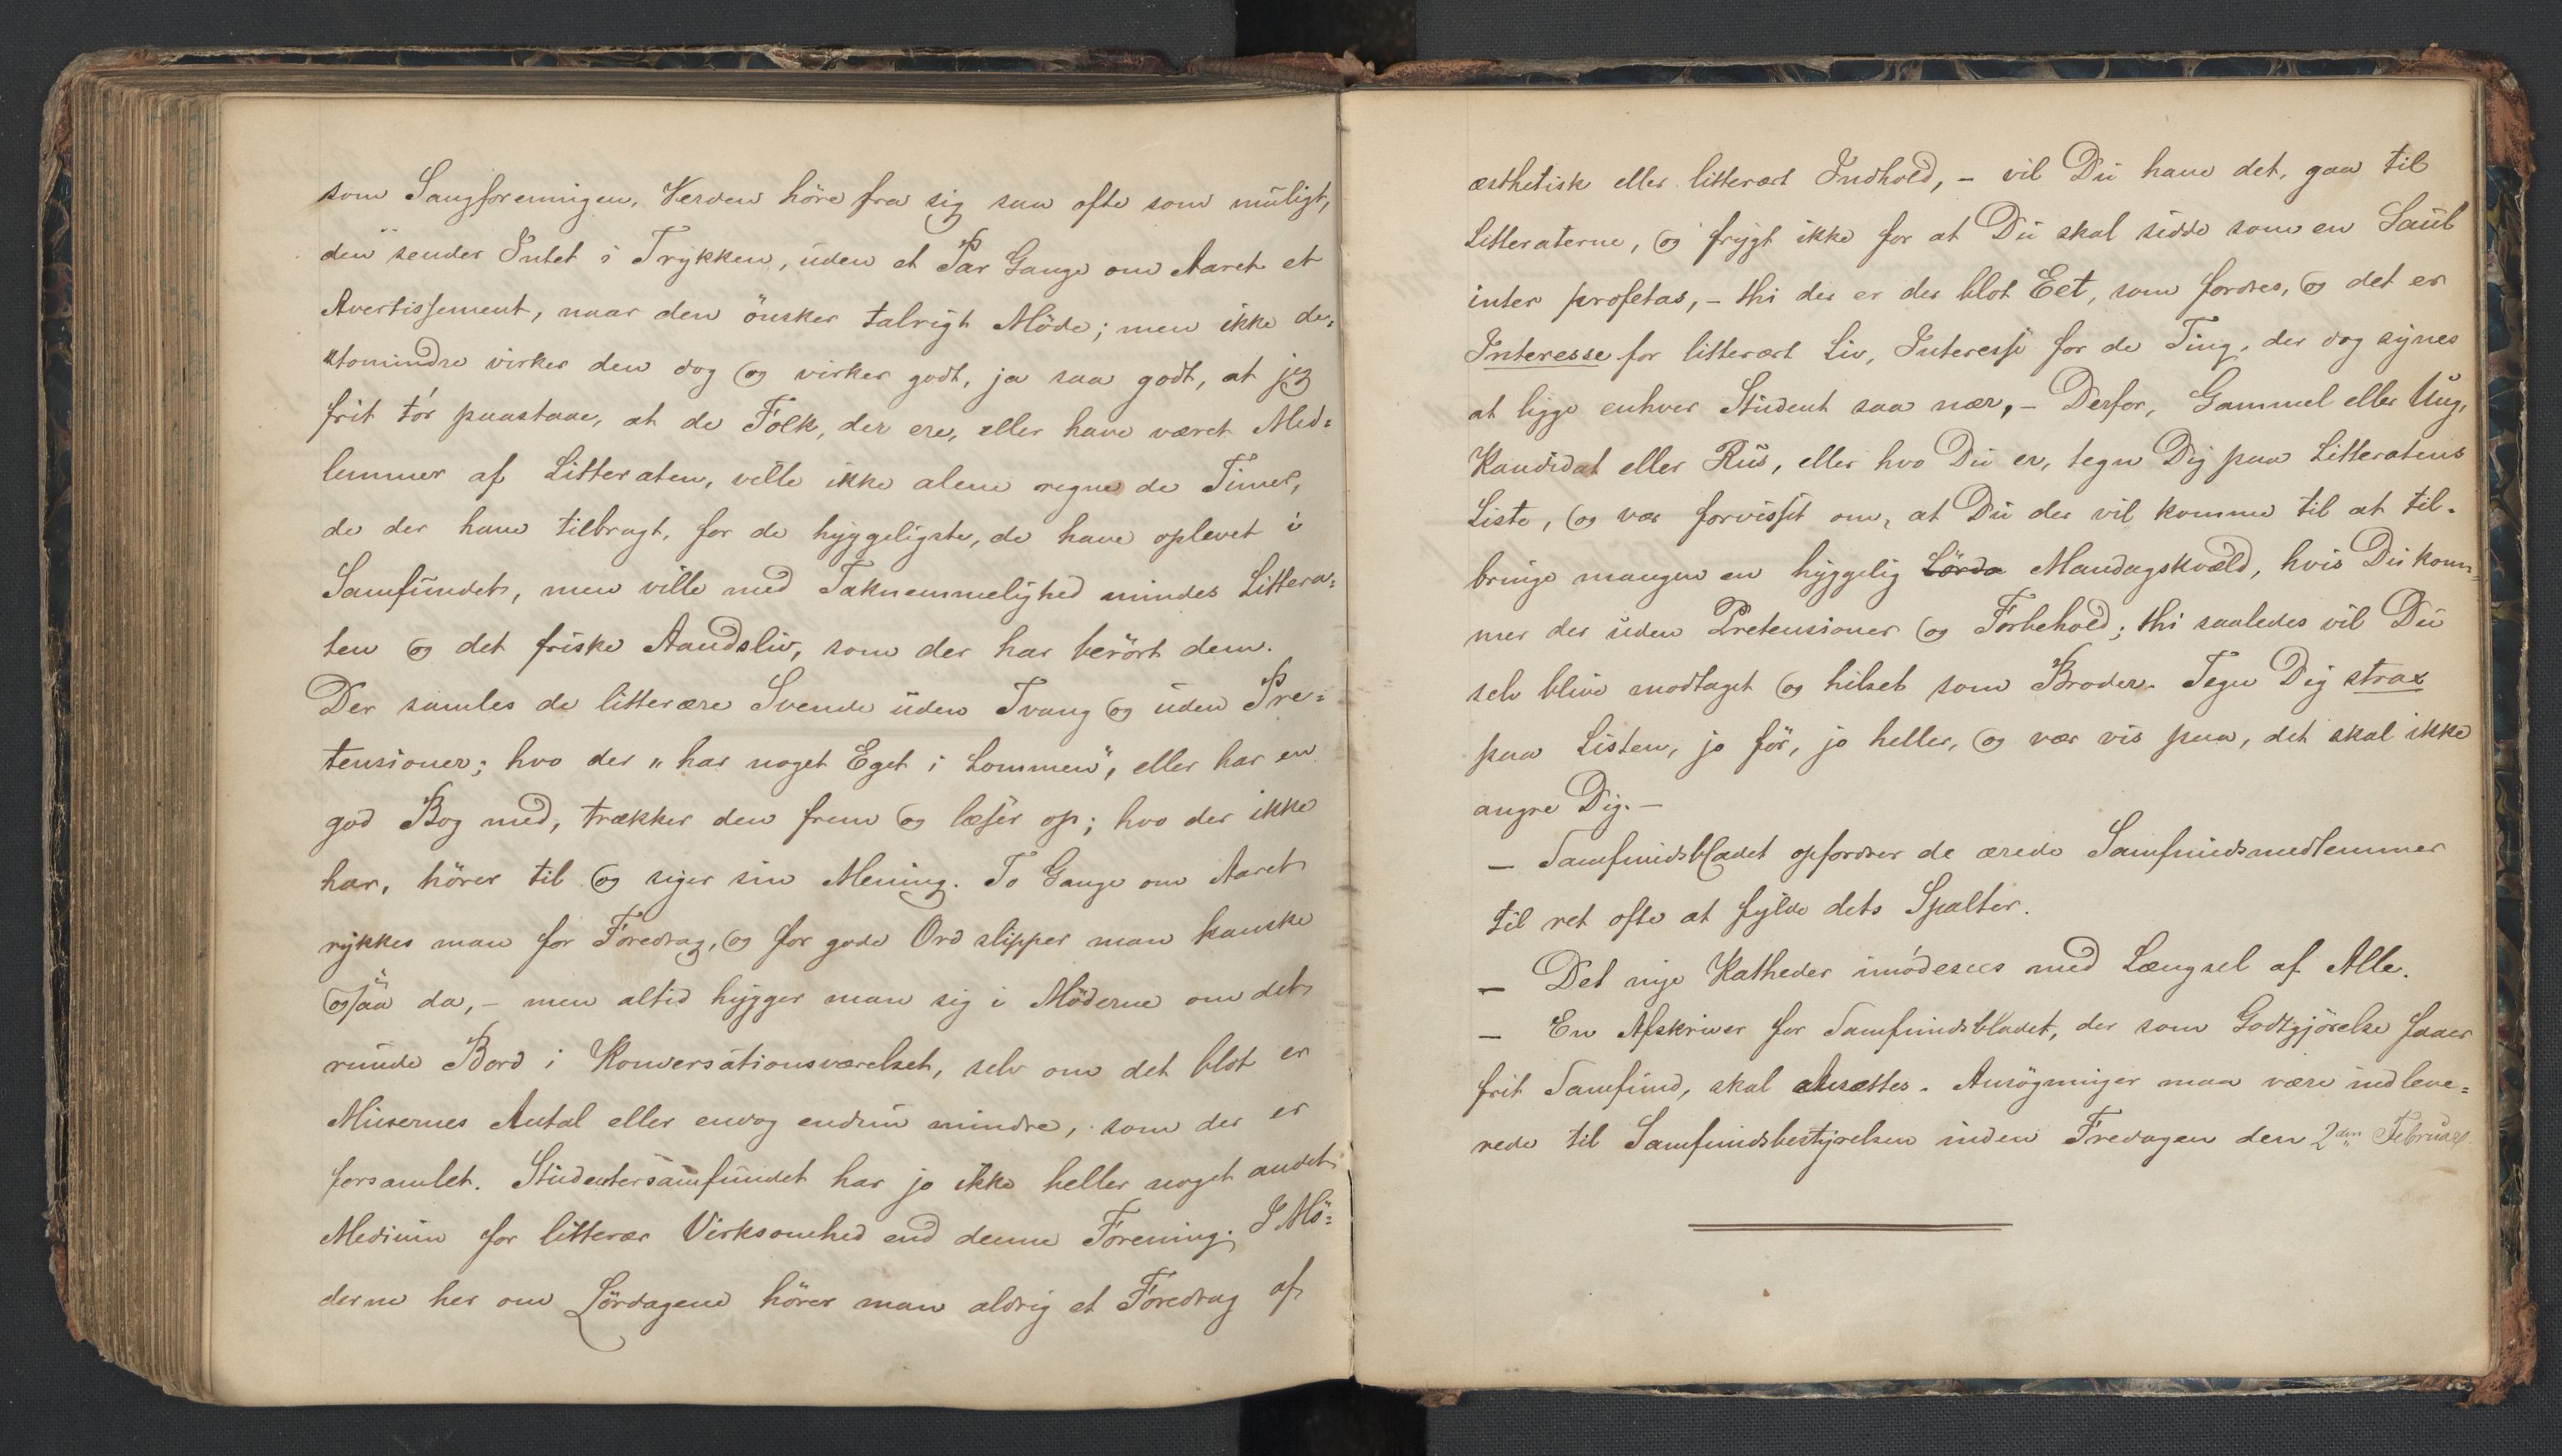 som Sangforeningen, Verden höre fra sig saa ofte som muligt,
den sender Intet i Trykken, uden et Par Gange om Aaret et
Avertissement, naar den önsker talrigt Möde; men ikke de-
stomindre virker den dog og virker godt, ja saa godt, at jeg
frit tör paastaae, at de Folk, der ere, eller have været Med-
lemmer af Litteraten, ville ikke alene regne de Timer,
de der have tilbragt, for de hyggeligste, de have oplevet i
Samfundet, men ville med Taknemmelighed mindes Littera-
ten og det friske Aandsliv, som der har berört dem.
Der samles de litterære Svende uden Tvang og uden Pre-
tensioner; hvo der "har noget Eget i Lommen", eller har en
god Bog med, trækker den frem og læser op; hvo der ikke
har, hörer til og siger sin Mening. To Gange om Aaret
rykkes man for Foredrag, og for gode Ord slipper man kanske
ogsaa da, – men altid hygger man sig i Möderne om det
runde Bord i Konversationsværelset, selv om det blot er
Musernes Antal eller endog endnu mindre, som der er
forsamlet. Studentersamfundet har jo ikke heller noget andet
Medium for litterær Virksomhed end denne Forening. I Mö-
derne her om Lördagene hörer man aldrig et Foredrag af
æsthetisk eller litterært Indhold, – vil Du have det, gaa til
Litteraterne, og frygt ikke for at Du skal sidde som en Saul
inter profetas, – thi der er der blot Eet, som fordres, og det er
Interesse for litterært Liv, Interesse for de Ting, der dog synes
at ligge enhver Student saa nær, – Derfor, Gammel eller Ung,
Kandidat eller Rus, eller hvo Du er, tegn Dig paa Litteratens
Liste, og vær forvisset om, at Du der vil komme til at til-
bringe mangen en hyggelig Lörda Mandagskvæld, hvis Du kom-
mer der uden Pretensioner og Forbehold; thi saaledes vil Du
selv blive modtaget og hilset som Broder. Tegn Dig strax
paa Listen, jo för, jo heller, og vær vis paa, det skal ikke
angre Dig. –
– Samfundsbladet opfordrer de ærede Samfundsmedlemmer
til ret ofte at fylde dets Spalter.
– Det nye Katheder imödesees med Længsel af Alle.
– En Afskriver for Samfundsbladet, der som Godtgjörelse faaer
frit Samfund, skal ansættes. Ansögninger maa være indleve-
rede til Samfundsbestyrelsen inden Fredagen den 2den Februar.